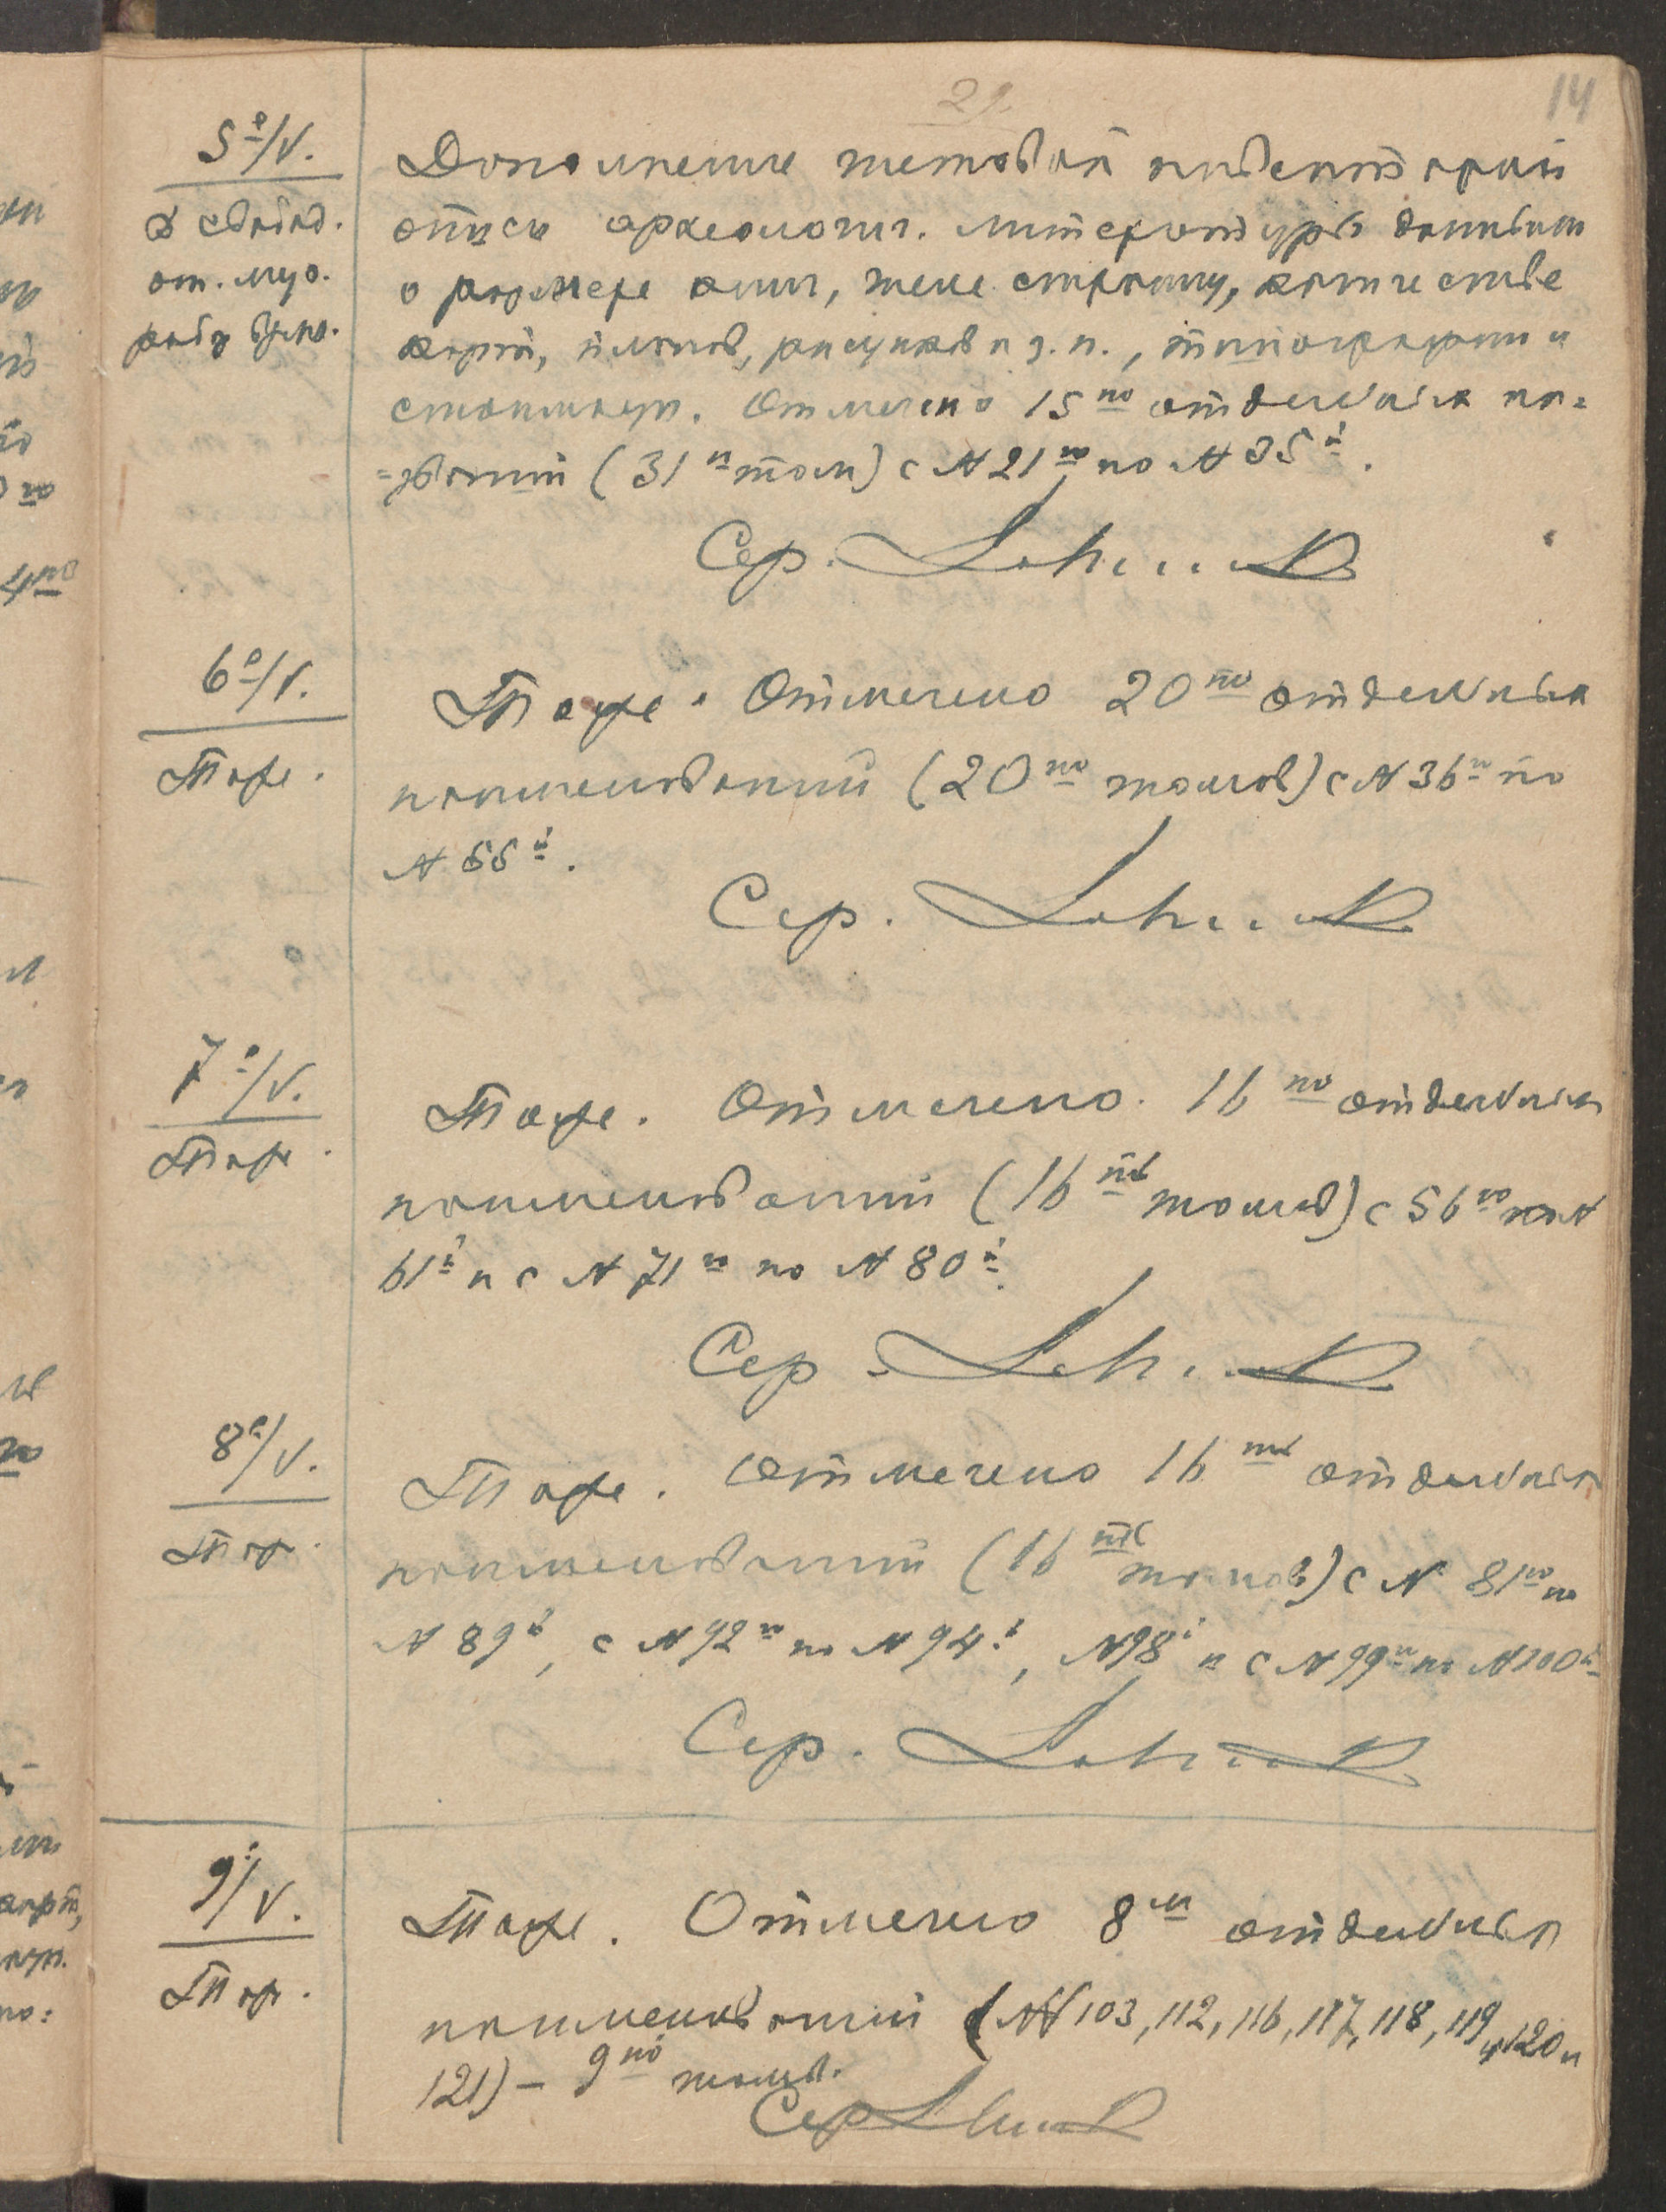 29.
14
5º/V.
в свобод.
от. муз.
раб. врем.
Дополнение шетовой инвентарной
описи археологич. литературы данными
о размере книг, числе страниц, количестве
карт, планов, рисунков и д. п., типографии и
стоимости. Отмечено 15но отдельных на=
=званий (31н том) с №21го по №35й.
Сер.
6º/V.
Тоже.
Тоже. Отмечено 20ть отдельных
наименований (20ть томов) с №36го по
№55й.
Сер.
7º/V.
Тоже.
Тоже. Отмечено 16ть отдельных
наименований (16ть томов) с 56го по №
61й и с №71го по №80й.
Сер.
8º/V.
Тоже.
Тоже. Отмечено 16ть отдельных
наименований (16ть томов) с № 81го по
№89й, с №92го по №94й, №98й и с №99го по №100й
Сер.
9º/V.
Тоже.
Тоже. Отмечено 8м отдельных
наименований (№№103, 112, 116, 117, 118, 119, 120 и
121) – 9ть томов.
Сер